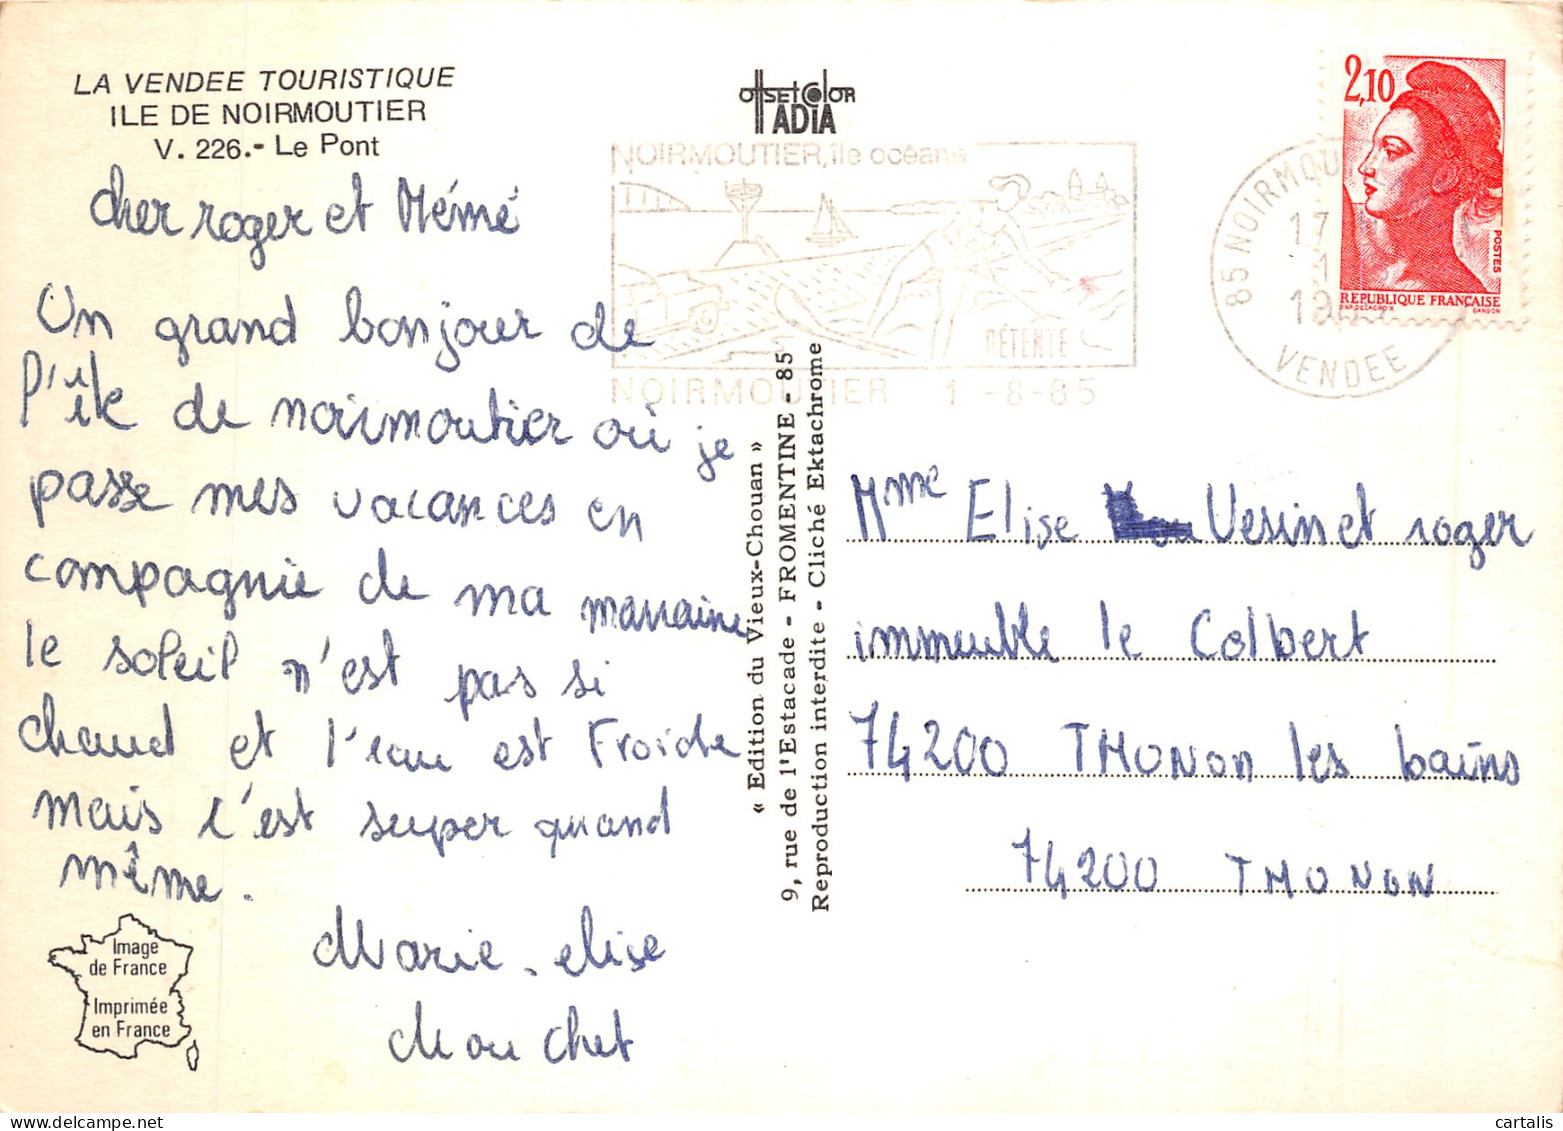 LA VENDEE TOURISTIQUE
ILE DE NOIRMOUTIER
V. 226.- Le Pont
cher roger et Mémé
Un grand bonjour de
l'île de noirmoutier où je
passe mes vacances en
compagnie de ma marraine
le soleil n'est pas si
chaud et l'eau est froide
mais c'est super quand
même.
Marie. elise
Mouchet
Image
de France
Imprimée
en France
offset color
ADIA
NOIRMOUTIER, île océane
DÉTENTE
NOIRMOUTIER 1 -8-85
« Edition du Vieux-Chouan »
9, rue de l'Estacade - FROMENTINE - 85
Reproduction interdite - Cliché Ektachrome
85 NOIRMOU
17
1
19
VENDEE
2,10
POSTES
REPUBLIQUE FRANÇAISE
D'AP. DELACROIX GANDON
Mme Elise Vesin et roger
immeuble le Colbert
74200 THONON les bains
74200 THONON
cartalis